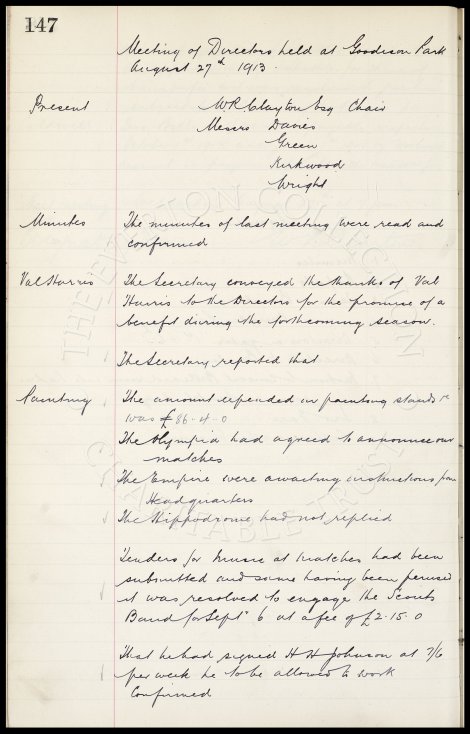 147
Meeting of Directors held at Goodison Park
August 27th 1913
Present W R Clayton Esq Chair
Messrs Davies
Green
Kirkwood
Wright
Minutes The minutes of last meeting were read and
confirmed
Val Harris The Secretary conveyed the thanks of Val
Harris to the Directors for the promise of a
benefit during the forthcoming season.
The Secretary reported that
Painting The amount expended in painting stands &c
was £86-4-0
The Olympia had agreed to announce our
matches
The Empire were awaiting instructions from
Headquarters
The Hippodrome had not replied
Tenders for music at matches had been
submitted and same having been perused
it was resolved to engage the Scouts
Band for Sept 6 at a fee of £2-15-0
That he had signed H H Johnson at 7/6
per week he to be allowed to work
Confirmed
THE EVERTON COLLECTION
CHARITABLE TRUST